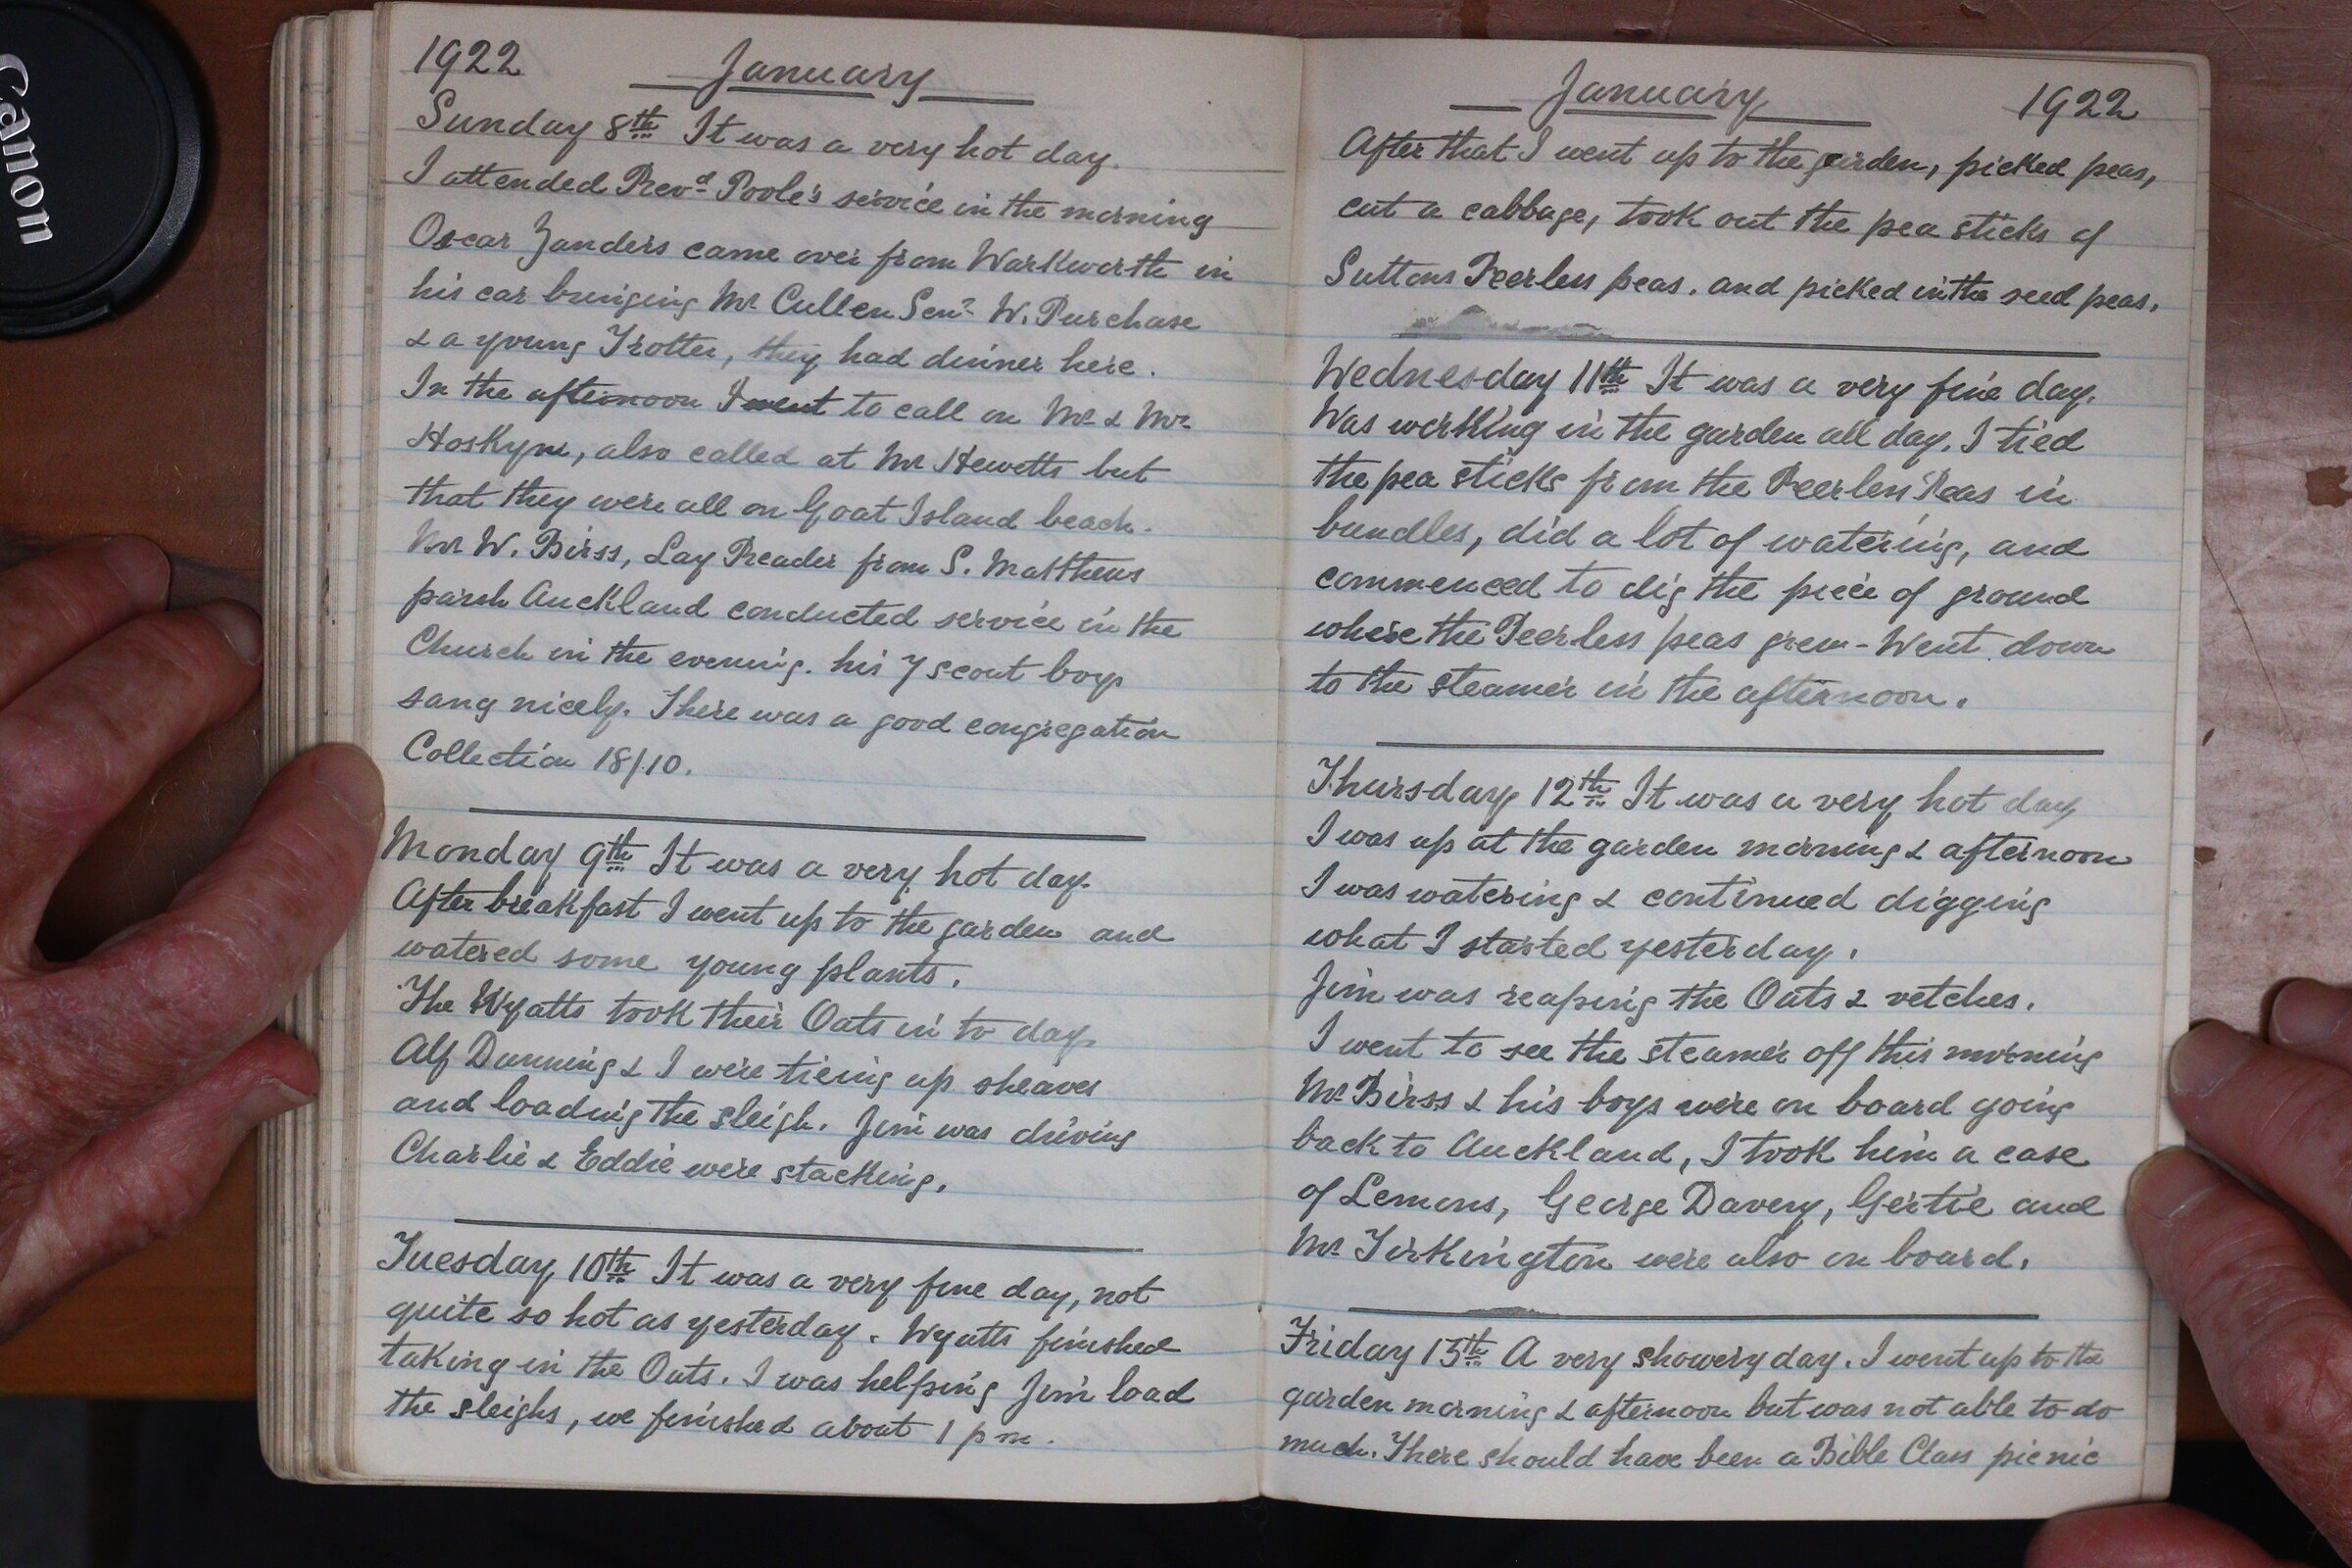 Canon
1922 January
Sunday 8th It was a very hot day.
I attended Revd Poole's service in the morning
Oscar Zanders came over from Warkworth in
his car bringing Mr Cullen Senr W. Purchase
& a young Trotter, they had dinner here.
In the afternoon I went to call on Mr & Mrs
Hoskyn, also called at Mr Hewetts but
that they were all on Goat Island beach.
Mr W. Birss, Lay Reader from S. Matthews
parsh Auckland conducted service in the
Church in the evening. his 7 scout boys
sang nicely. There was a good congregation
Collection 18/10.
Monday 9th It was a very hot day.
After breakfast I went up to the garden and
watered some young plants.
The Wyatts took their Oats in to day.
Alf Dunning & I were tieing up sheaves
and loading the sleigh. Jim was driving
Charlie & Eddie were stacking.
Tuesday 10th It was a very fine day, not
quite so hot as yesterday. Wyatts finished
taking in the Oats. I was helping Jim load
the sleighs, we finished about 1 pm.
January 1922
After that I went up to the garden, picked peas,
cut a cabbage, took out the pea sticks of
Suttons Peerless peas. and picked in the seed peas.
Wednesday 11th It was a very fine day.
Was working in the garden all day. I tied
the pea sticks from the Peerless Peas in
bundles, did a lot of watering, and
commenced to dig the piece of ground
where the Peerless peas grew - Went down
to the steamer in the afternoon.
Thursday 12th It was a very hot day
I was up at the garden morning & afternoon
I was watering & continued digging
what I started yesterday.
Jim was reaping the Oats & vetches.
I went to see the steamer off this morning
Mr Birss & his boys were on board going
back to Auckland, I took him a case
of Lemons, George Davey, Gertie and
Mr Turkington were also on board.
Friday 13th A very showery day. I went up to the
garden morning & afternoon but was not able to do
much. There should have been a Bible Class picnic